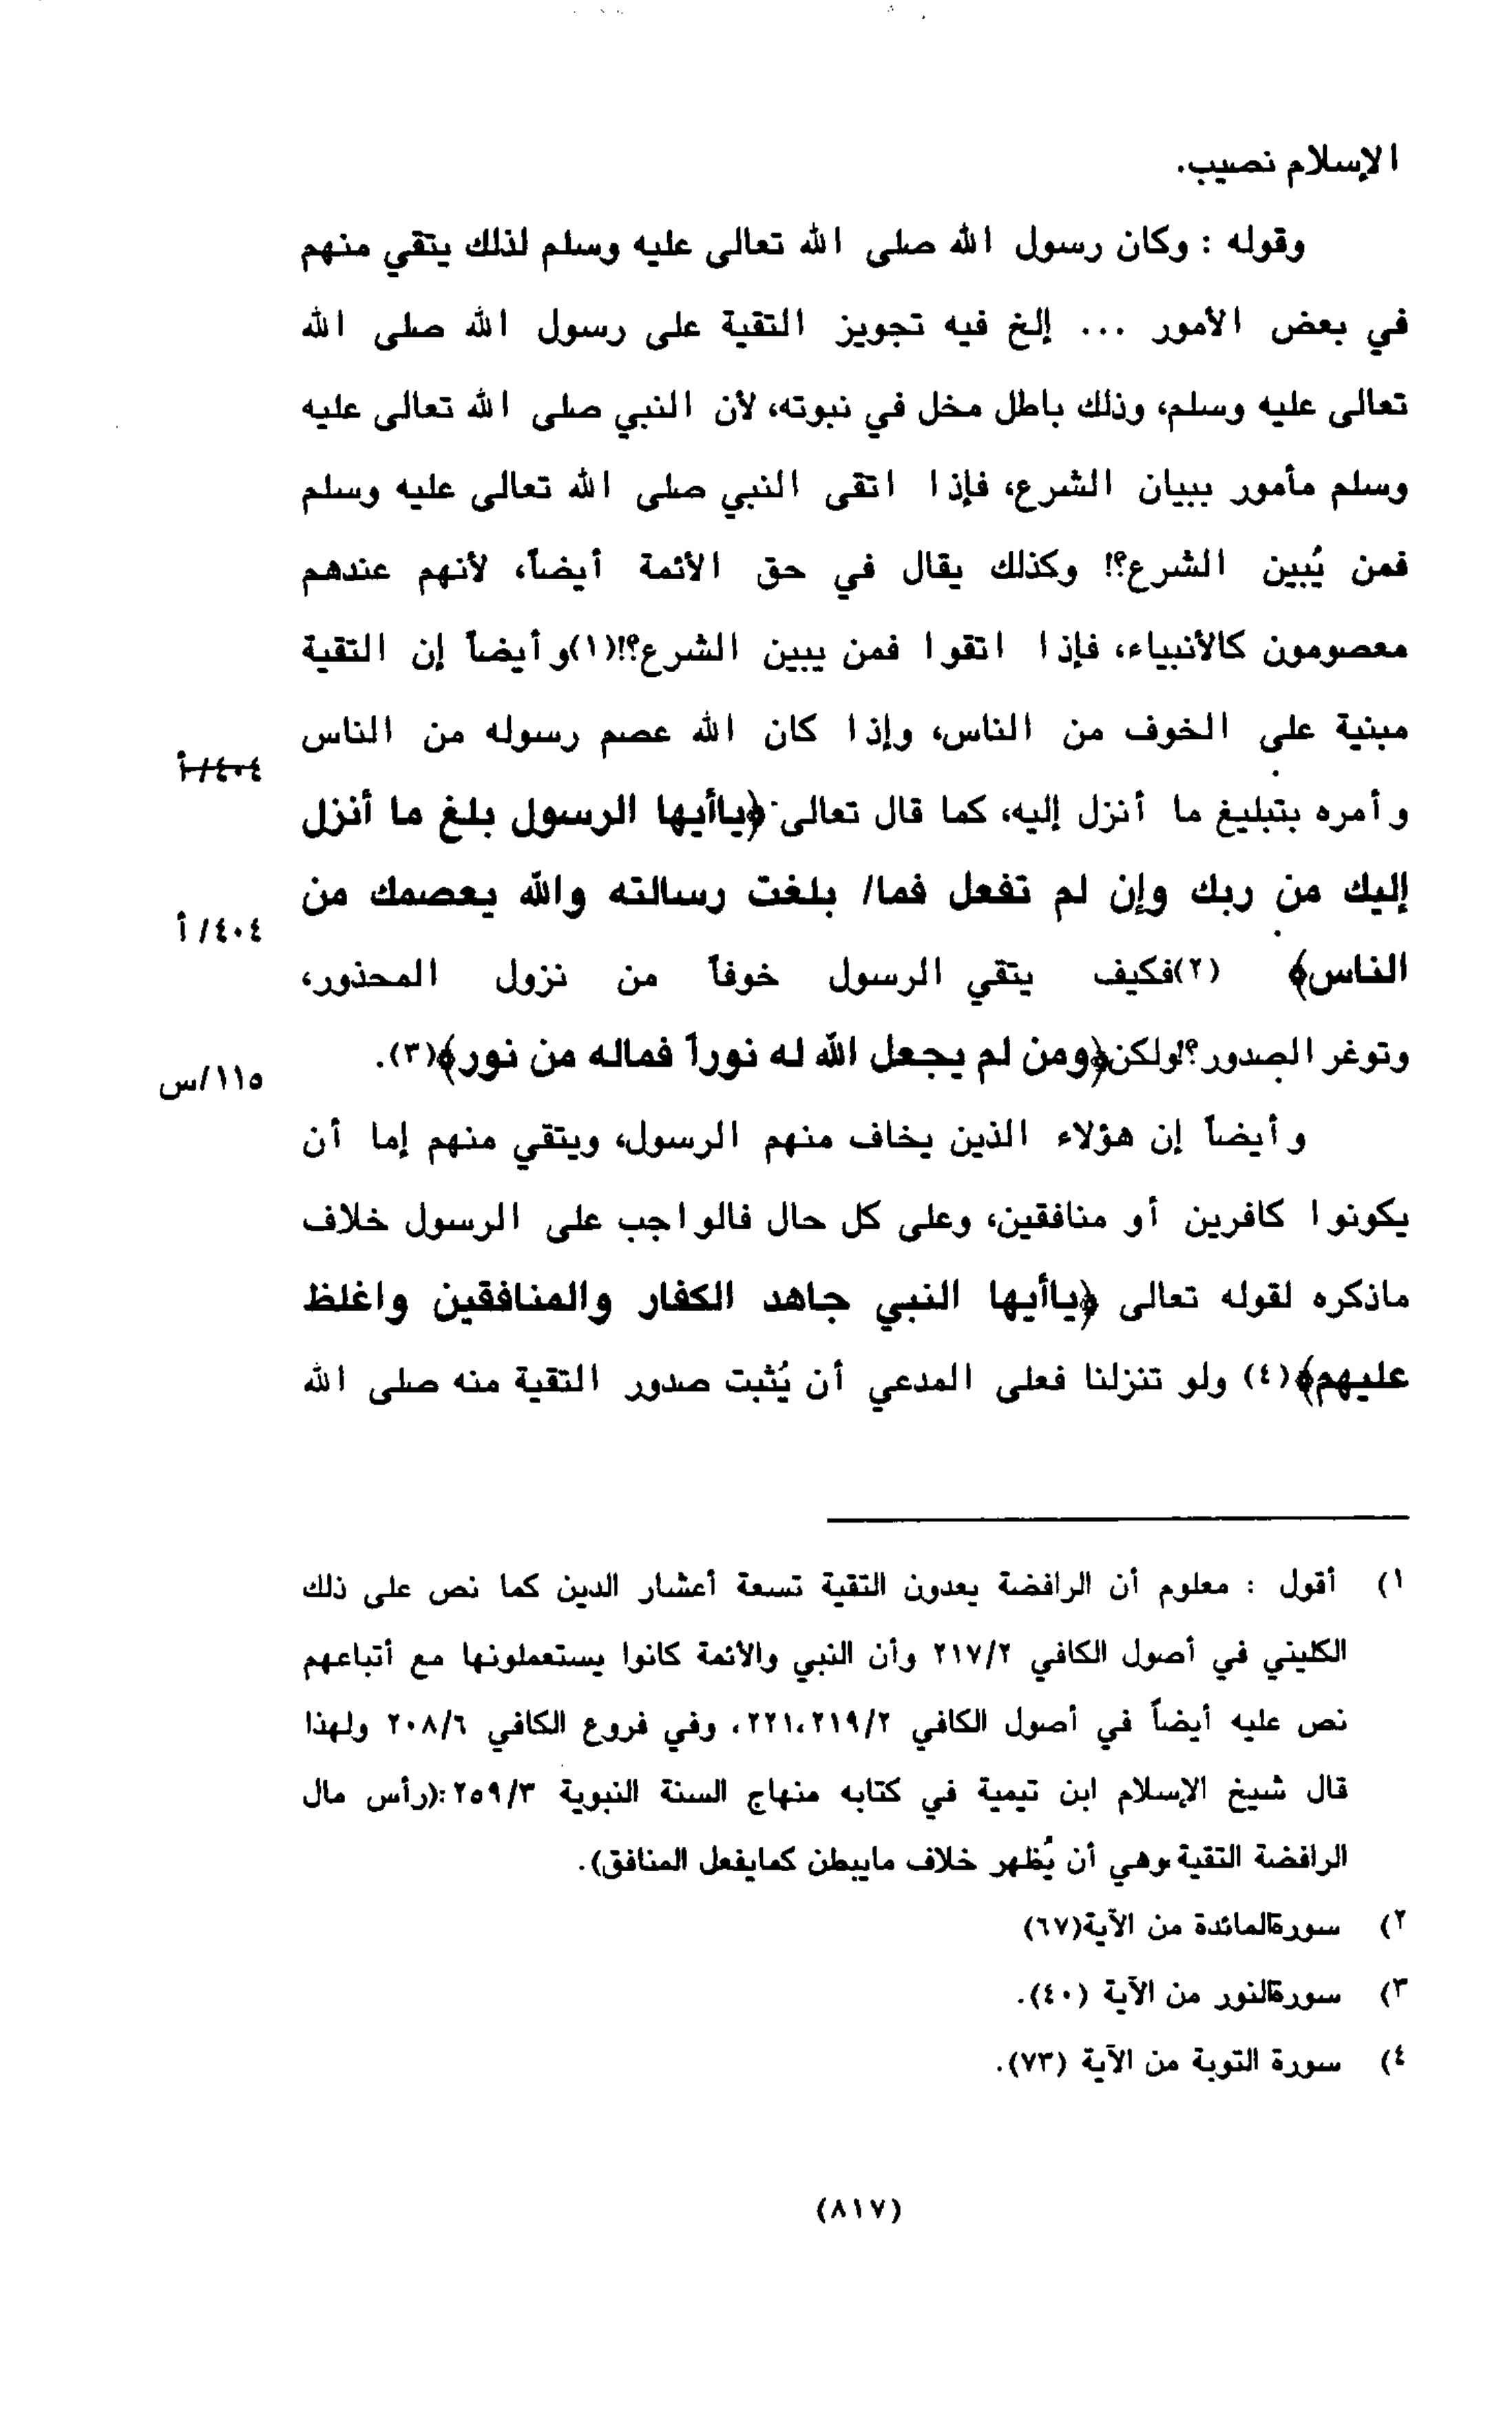 الإسلام نصيب.
وقوله : وكان رسول الله صلى الله تعالى عليه وسلم لذلك يتقي منهم
في بعض الأمور ... إلخ فيه تجويز التقية على رسول الله صلى الله
تعالى عليه وسلم، وذلك باطل مخل في نبوته، لأن النبي صلى الله تعالى عليه
وسلم مأمور ببيان الشرع، فإذا اتقى النبي صلى الله تعالى عليه وسلم
فمن يُبين الشرع؟! وكذلك يقال في حق الأئمة أيضاً، لأنهم عندهم
معصومون كالأنبياء، فإذا اتقوا فمن يبين الشرع؟!(١)وأيضاً إن التقية
مبنية على الخوف من الناس، وإذا كان الله عصم رسوله من الناس
٤٠٤/أ
وأمره بتبليغ ما أنزل إليه، كما قال تعالى ﴿ياأيها الرسول بلغ ما أنزل
إليك من ربك وإن لم تفعل فما/ بلغت رسالته والله يعصمك من
٤٠٤/أ
الناس﴾ (٢)فكيف يتقي الرسول خوفاً من نزول المحذور،
وتوغر الصدور؟!ولكن﴿ومن لم يجعل الله له نوراً فماله من نور﴾(٣).
١١٥/س
وأيضاً إن هؤلاء الذين يخاف منهم الرسول، ويتقي منهم إما أن
يكونوا كافرين أو منافقين، وعلى كل حال فالواجب على الرسول خلاف
ماذكره لقوله تعالى ﴿ياأيها النبي جاهد الكفار والمنافقين واغلظ
عليهم﴾(٤) ولو تنزلنا فعلى المدعي أن يُثبت صدور التقية منه صلى الله
١) أقول : معلوم أن الرافضة يعدون التقية تسعة أعشار الدين كما نص على ذلك
الكليني في أصول الكافي ٢١٧/٢ وأن النبي والأئمة كانوا يستعملونها مع أتباعهم
نص عليه أيضاً في أصول الكافي ٢٢١،٢١٩/٢، وفي فروع الكافي ٢٠٨/٦ ولهذا
قال شيخ الإسلام ابن تيمية في كتابه منهاج السنة النبوية ٢٥٩/٣:(رأس مال
الرافضة التقية،وهي أن يُظهر خلاف مايبطن كمايفعل المنافق).
٢) سورةالمائدة من الآية(٦٧)
٣) سورةالنور من الآية (٤٠).
٤) سورة التوبة من الآية (٧٣).
(٨١٧)